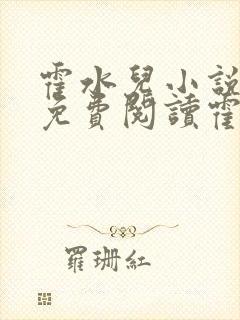 霍水兒小説
免費閱讀霍
羅珊紅